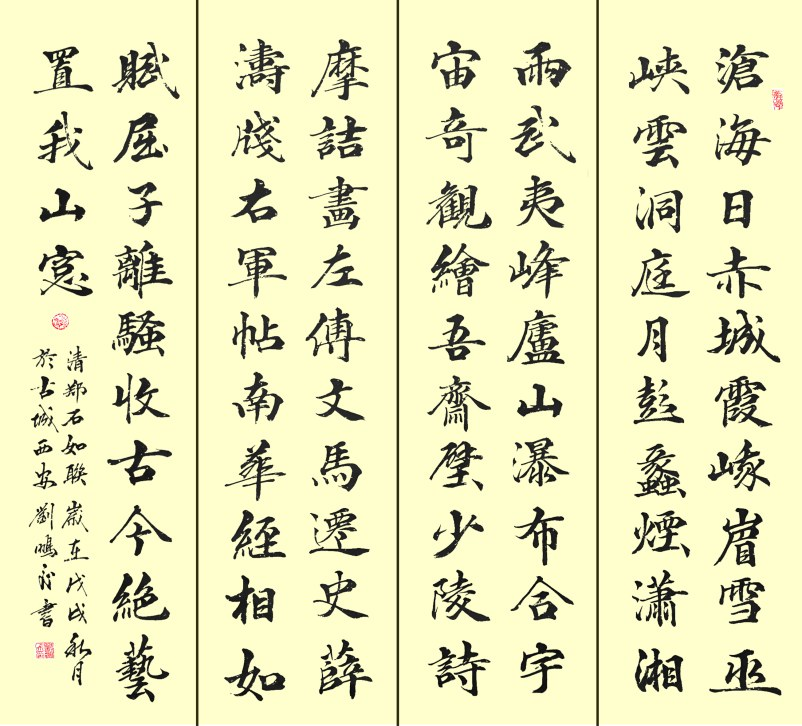 滄海日赤城霞峨眉雪巫
峽雲洞庭月彭蠡煙瀟湘
雨武夷峰廬山瀑布合宇
宙奇觀繪吾齋壁少陵詩
摩詰畫左傳文馬遷史薛
濤牋右軍帖南華經相如
賦屈子離騷收古今絕藝
置我山窓
清郑石如聯 嵗在戊戌秋月
於古城西安 劉鳴 書